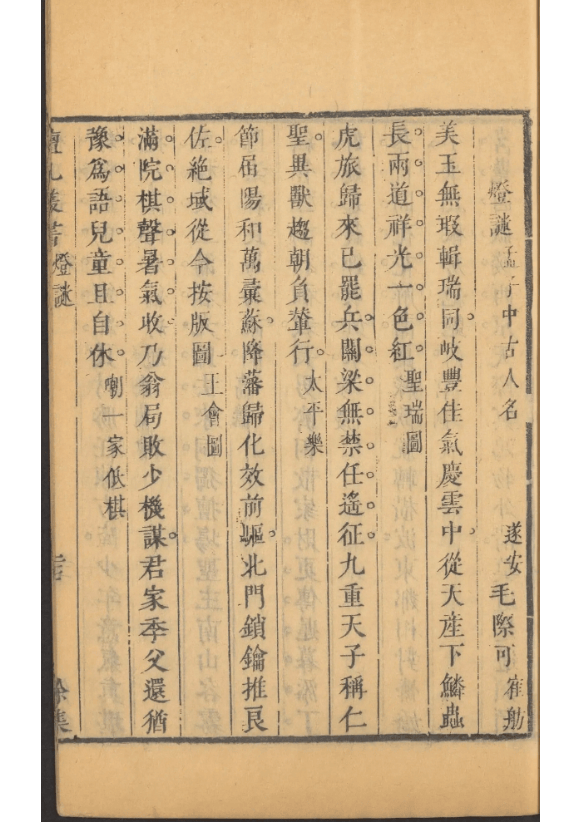 燈謎 孟子中古人名 遂安毛際可 䧹舫
美玉無瑕輯瑞同岐豐佳氣慶雲中從天産下鱗蟲
長兩道祥光一色紅 聖瑞圖
虎旅歸來已罷兵關梁無禁任遙征九重天子稱仁
聖異獸趨朝負輦行 太平樂
節屆陽和萬彙蘇降藩歸化效前驅北門鎖鑰推良
佐絶域從今按版圖 王會圖
滿院棋聲暑氣收乃翁局敗少機謀君家季父還猶
豫爲語兒童且自休 嘲一家低棋
檀几叢書 燈謎 餘集